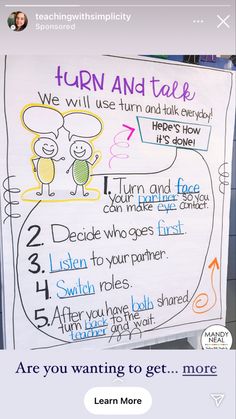 teachingwithsimplicity
Sponsored
TURN AND talk
We will use turn and talk everyday!
HERE'S HOW
it's done!
1. Turn and face
your partner so you
can make eye contact.
2. Decide who goes first.
3. Listen to your partner.
4. Switch roles.
5. After you have both shared
turn back to the
teacher and wait.
MANDY
NEAL
Are you wanting to get... more
Learn More